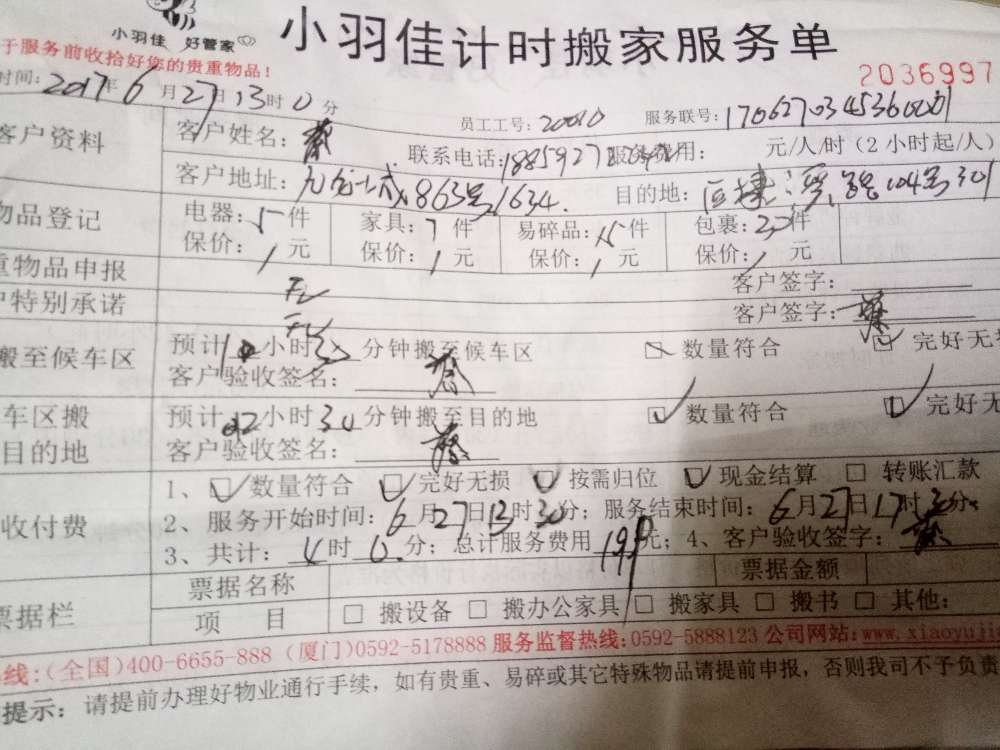 小羽佳 好管家
小羽佳计时搬家服务单
于服务前收拾好您的贵重物品！
2036997
时间：2017年6月27日13时0分
员工工号：20010 服务联号：1706270345360001
客户资料
客户姓名：蔡 联系电话：1885927 服务费用： 元/人/时（2小时起/人）
客户地址： 863号1634 目的地： 104号301
物品登记
电器：5件 家具：7件 易碎品：15件 包裹：件
保价：1元 保价：1元 保价：1元 保价：1元
重物品申报 无 客户签字：
户特别承诺 无 客户签字：蔡
搬至候车区
预计1小时分钟搬至候车区 数量符合 完好无损
客户验收签名：蔡
车区搬
目的地
预计2小时30分钟搬至目的地 数量符合 完好无
客户验收签名：蔡
收付费
1、数量符合 完好无损 按需归位 现金结算 转账汇款
2、服务开始时间：6月27日13时30分；服务结束时间：6月27日17时30分。
3、共计：4时0分；总计服务费用199元；4、客户验收签字：蔡
票据栏
票据名称 票据金额
项 目 搬设备 搬办公家具 搬家具 搬书 其他：
热线：(全国)400-6655-888 (厦门)0592-5178888 服务监督热线：0592-5888123 公司网站：www.xiaoyujia
提示：请提前办理好物业通行手续，如有贵重、易碎或其它特殊物品请提前申报，否则我司不予负责